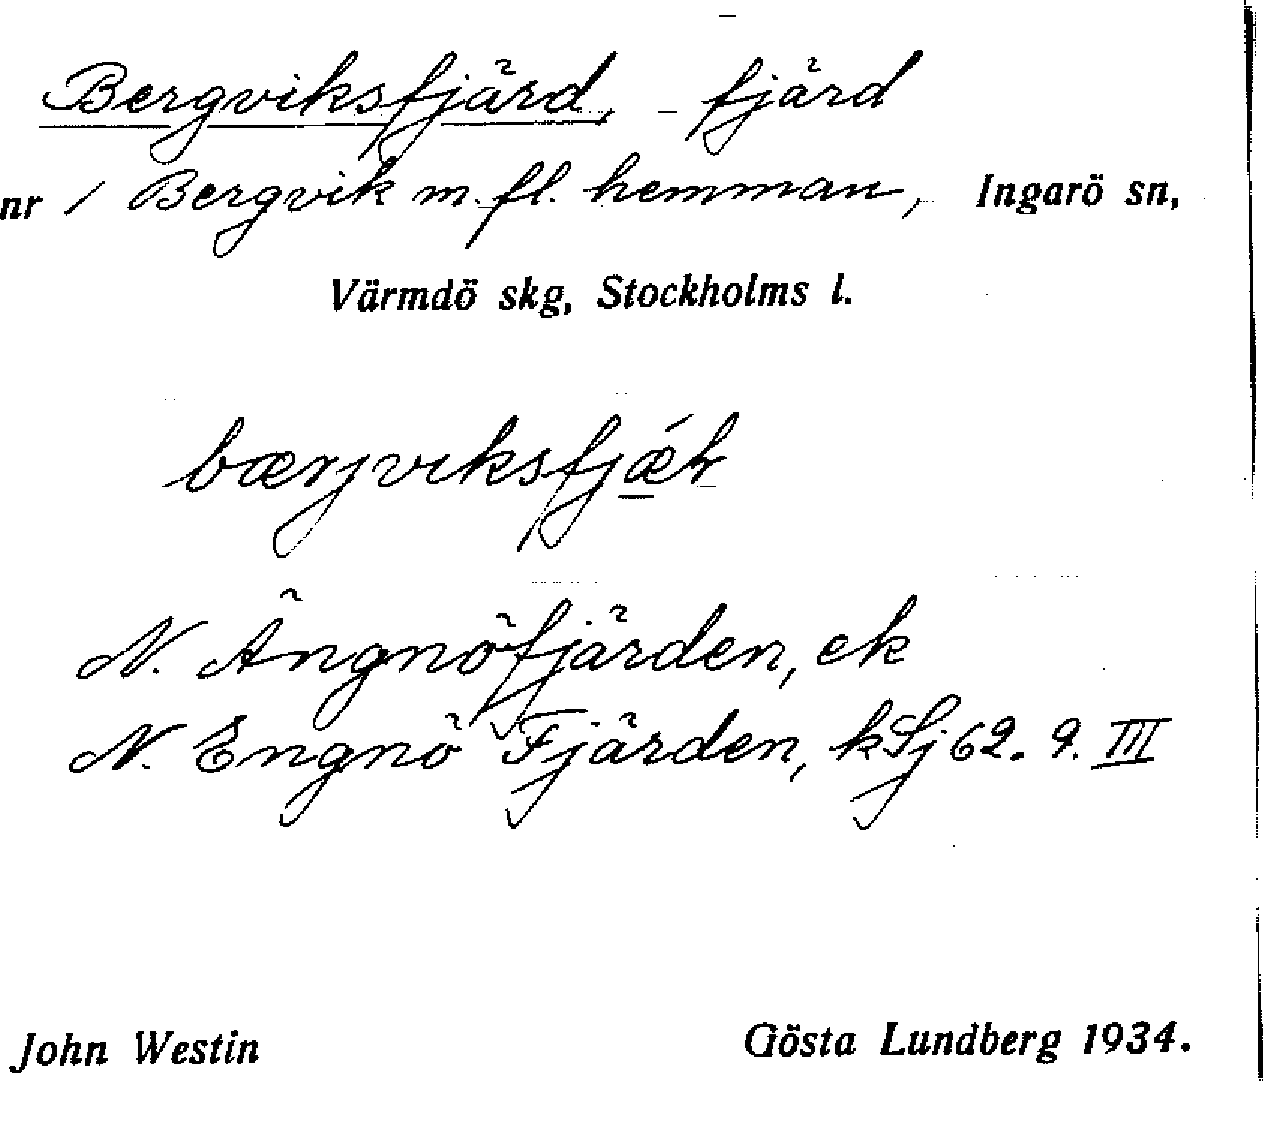 Bergviksfjärd, - fjärd
nr 1 Bergvik m. fl. hemman, Ingarö sn,
Värmdö skg, Stockholms l.
N. Ängnöfjärden, ek
N. Engnö Fjärden, kSj 62. 9. III
John Westin Gösta Lundberg 1934.